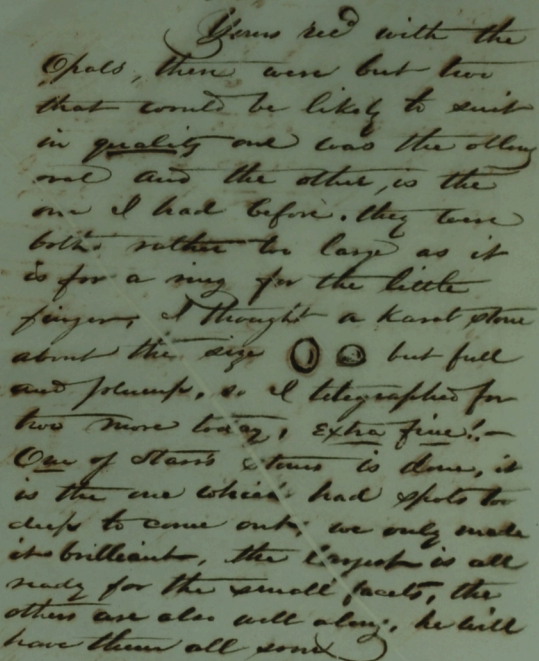 Yours rec'd with the
Opals, there were but two
that would be likely to suit
in quality one was the oblong
oval and the other, is the
one I had before. they were
both rather too large as it
is for a ring for the little
finger, I thought a Karat stone
about the size but full
and plump, so I telegraphed for
two more today, extra fine! -
One of Starr's stones is done, it
is the one which had spots too
deep to come out, we only made
it brilliant, the largest is all
ready for the small facets, the
others are also well along, he will
have them all soon